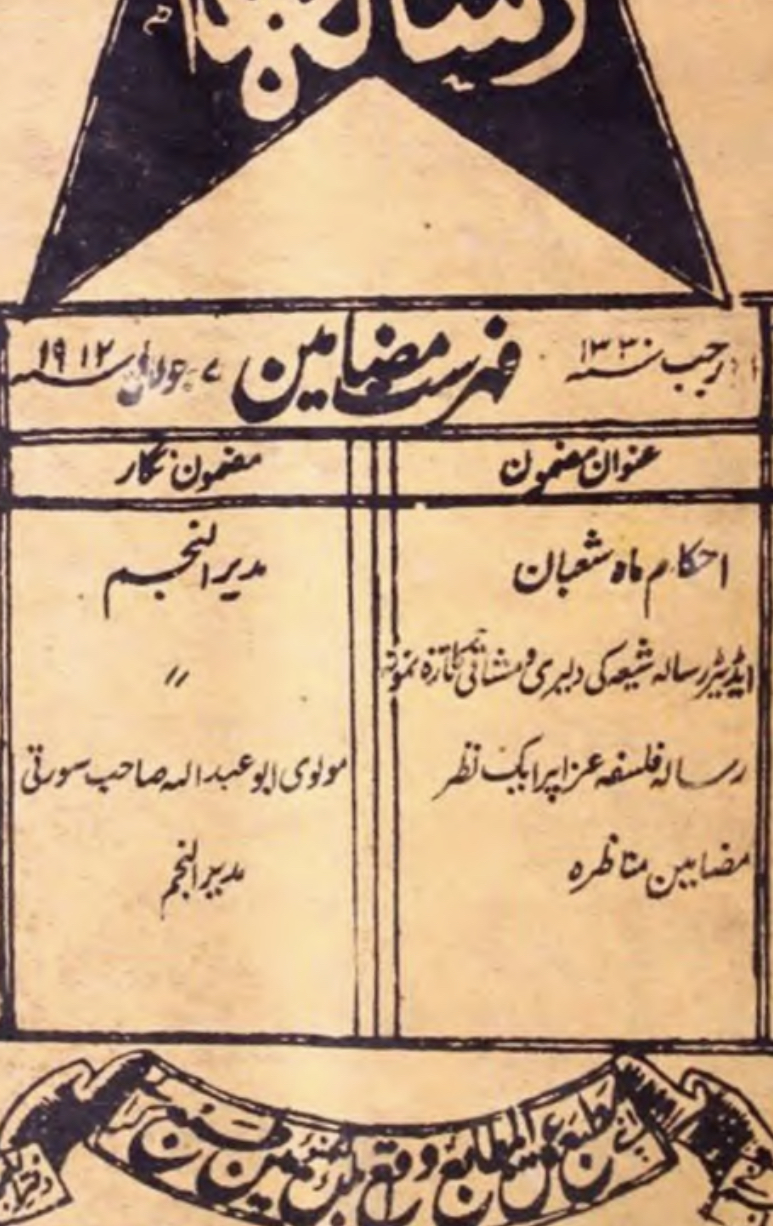 رجب ۱۳۳۰ فہرست مضامین ۷ جولائی ۱۹۱۲
عنوان مضمون مضمون نگار
احکام ماہ شعبان مدیر النجم
ایڈیٹر رسالہ شیعہ کی دلیری و مشاقی کا تازہ نمونہ 〃
رسالہ فلسفہ عزا پر ایک نظر مولوی ابو عبد اللہ صاحب سورتی
مضامین مناظرہ مدیر النجم
المطابع واقع